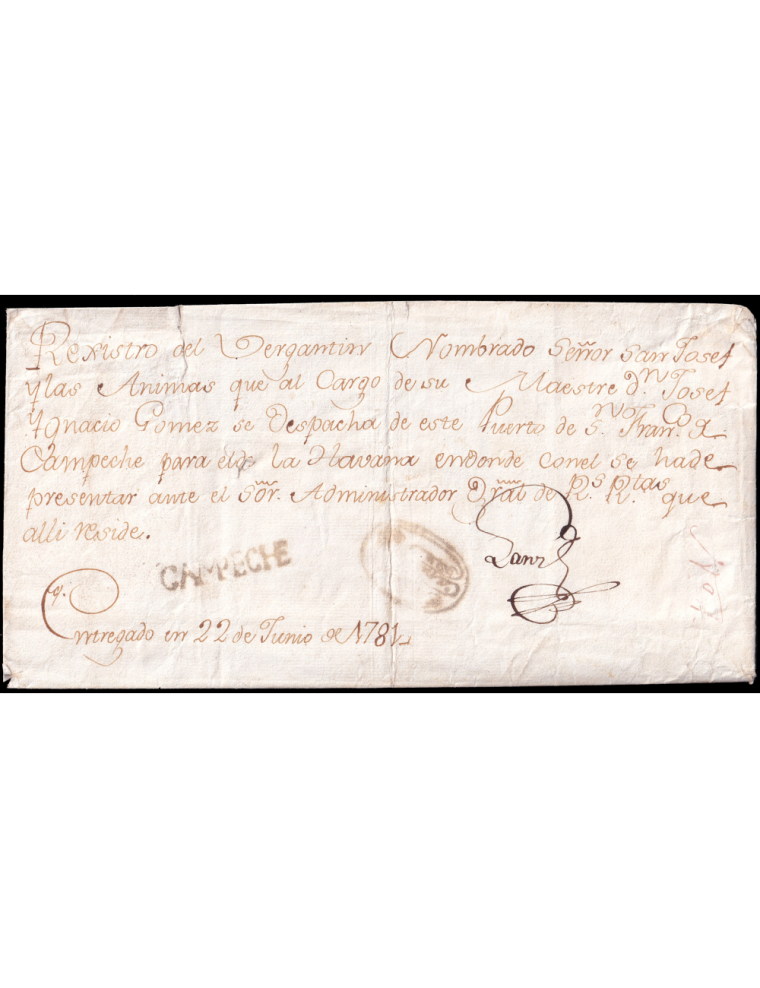 Rexistro del Vergantin Nombrado Señor San Josef
y las Animas que al Cargo de su Maestre Dn. Josef
Ygnacio Gomez se Despacha de este Puerto de Sn. Franco. d
Campeche para el de la Havana endonde conel se hade
presentar ante el Sor. Administrador Gral de Rs. Rtas que
alli reside.
CAMPECHE
Entregado en 22 de Junio de 1781